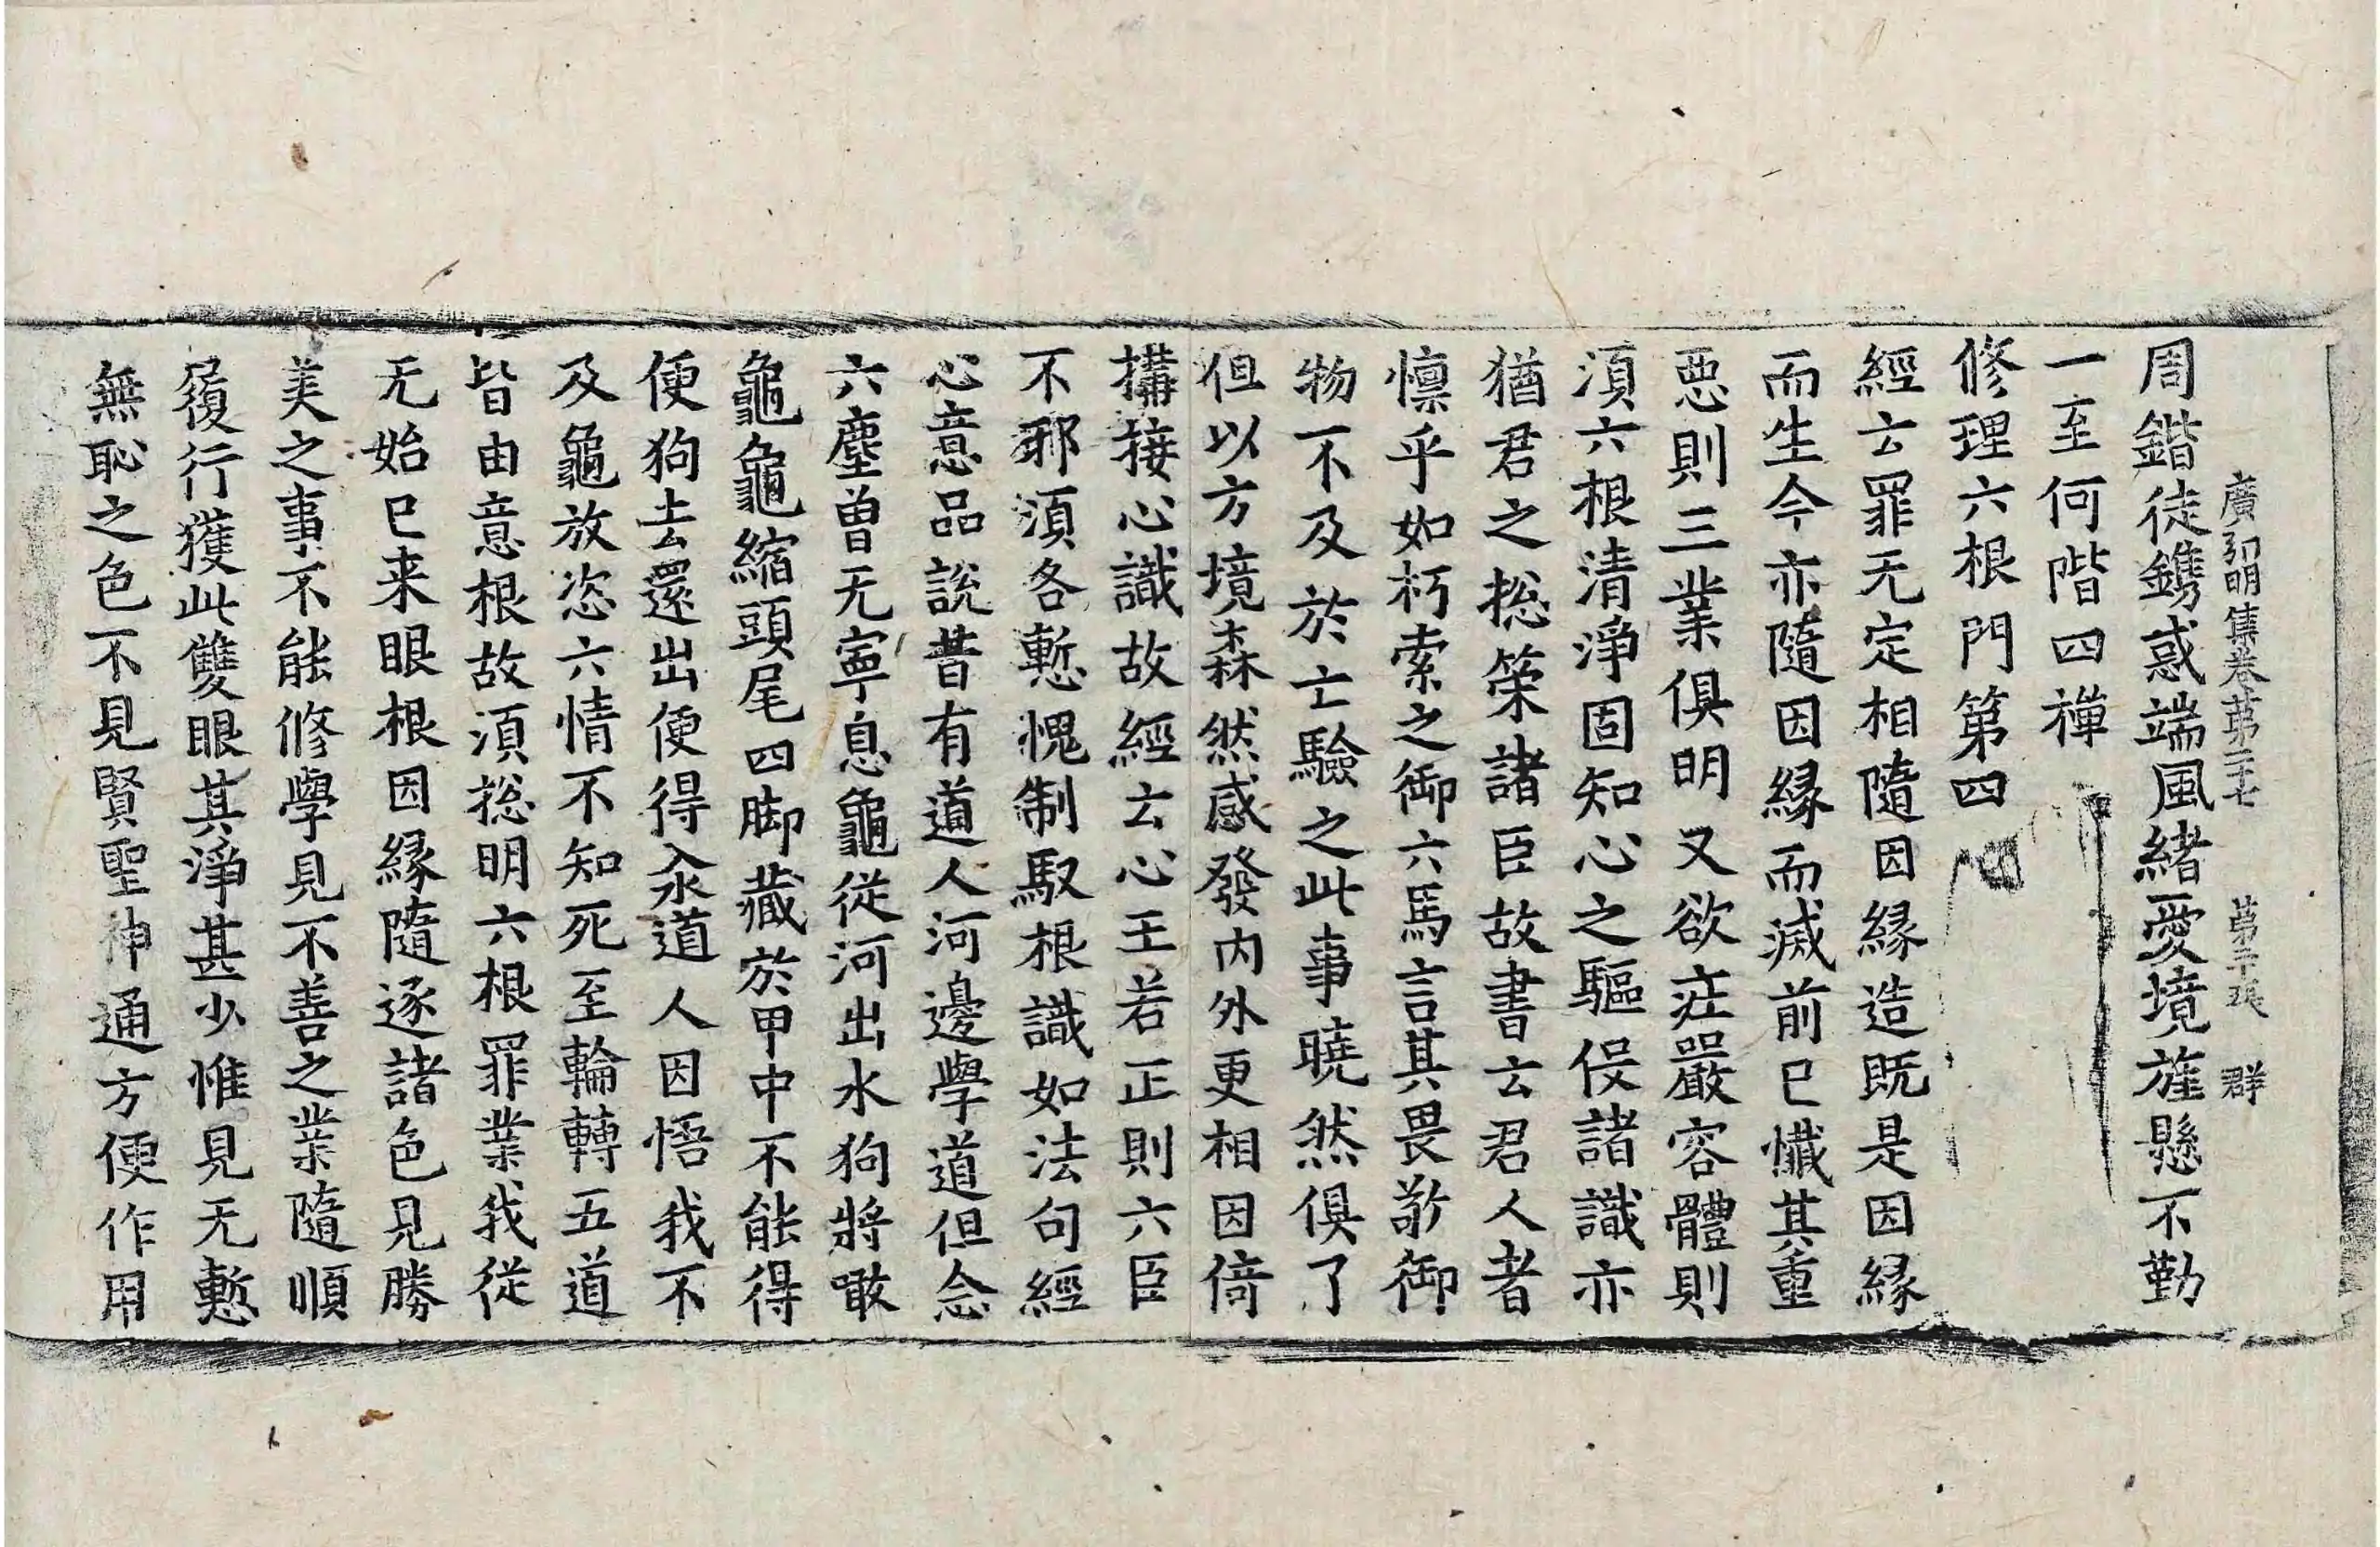 廣弘明集卷第二十七 第三張 群
周鍇徒鐫惑端風緒愛境旌懸不勤
一至何階四禪
修理六根門第四
經云罪无定相隨因縁造既是因縁
而生今亦隨因縁而滅前已懺其重
惡則三業俱明又欲莊嚴容體則
湏六根清淨固知心之驅役諸識亦
猶君之捴策諸臣故書云君人者
懍乎如朽索之御六馬言其畏敬御
物不及於亡驗之此事曉然俱了
但以方境森然感發内外更相因倚
搆接心識故經云心王若正則六臣
不邪湏各慙愧制馭根識如法句經
心意品說昔有道人河邊學道但念
六塵曽无寧息龜從河出水狗將噉
龜龜縮頭尾四脚藏於甲中不能得
便狗去還出便得入水道人因悟我不
及龜放恣六情不知死至輪轉五道
皆由意根故湏捴明六根罪業我從
无始已来眼根因縁隨逐諸色見勝
美之事不能修學見不善之業隨順
履行獲此雙眼其淨甚少惟見无慙
無恥之色不見賢聖神通方便作用